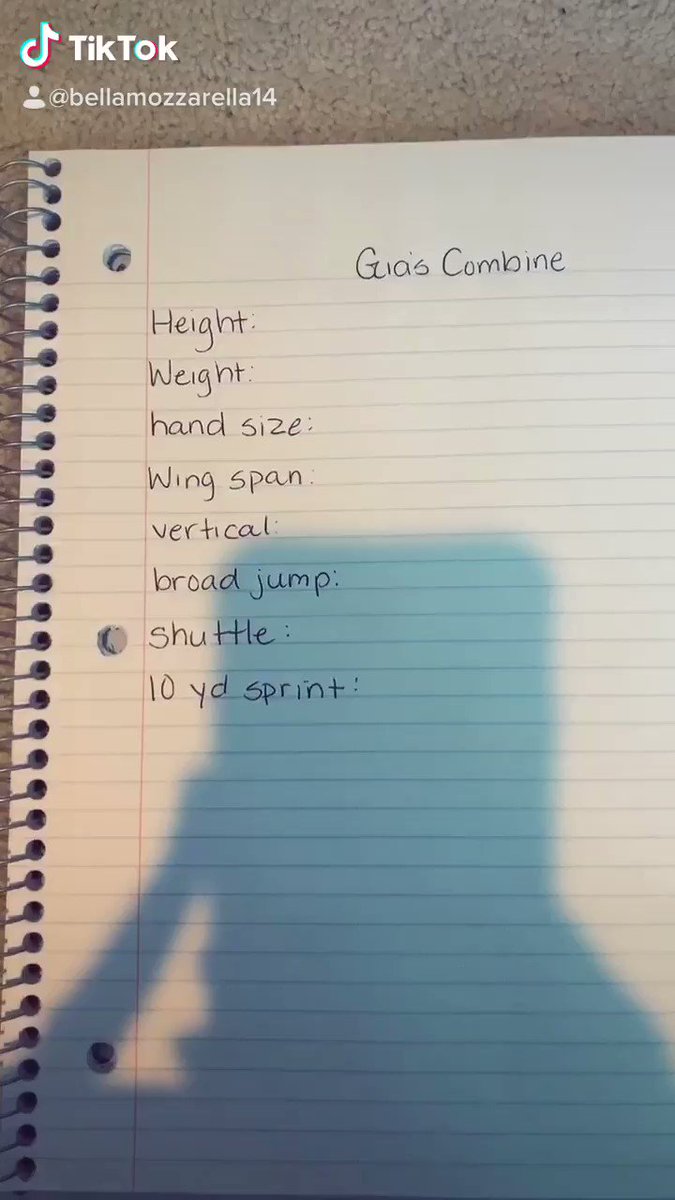 TikTok
@bellamozzarella14
Gia's Combine
Height:
Weight:
hand size:
Wing span:
vertical:
broad jump:
shuttle:
10 yd sprint: